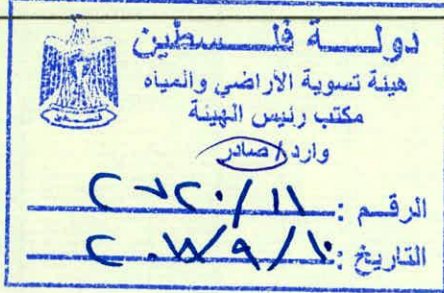 دولــــة فلــــسطين
هيئة تسوية الأراضي والمياه
مكتب رئيس الهيئة
وارد / صادر
الرقم : ٢٧٢٠/١١
التاريخ : ٢٠١٧/٩/١٠